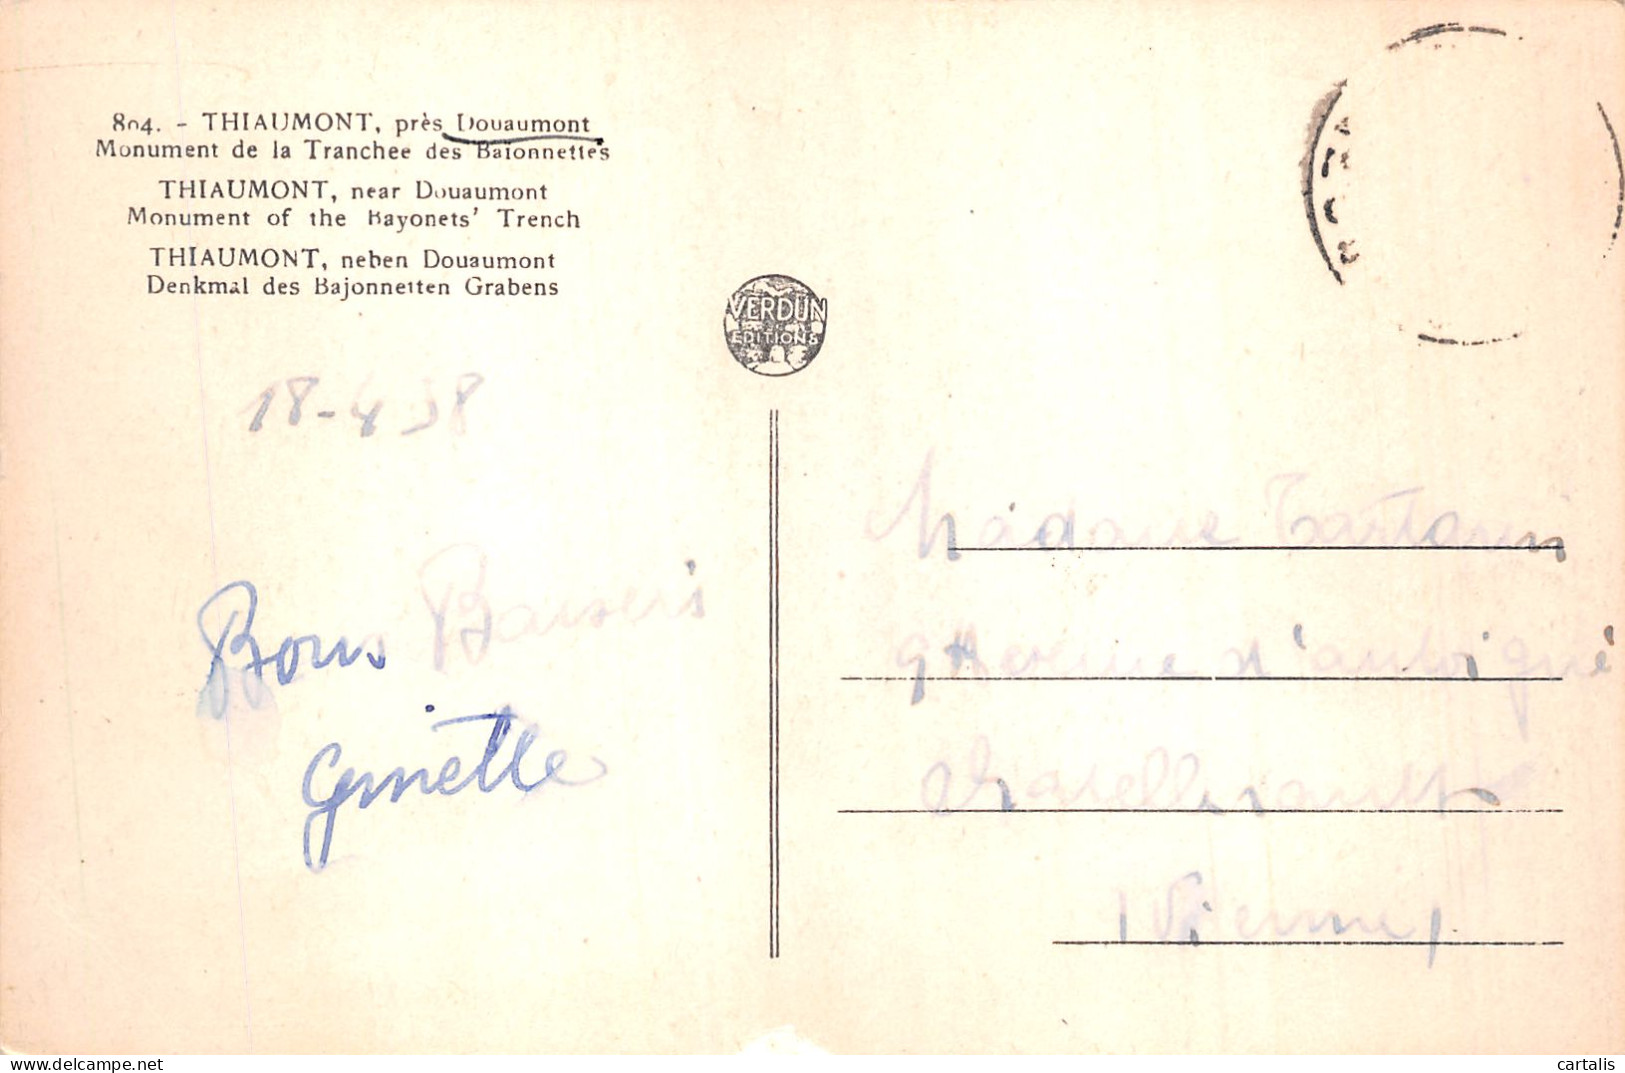 804. - THIAUMONT, près Douaumont
Monument de la Tranchee des Baïonnettes
THIAUMONT, near Douaumont
Monument of the Bayonets' Trench
THIAUMONT, neben Douaumont
Denkmal des Bajonnetten Grabens
VERDUN
EDITIONS
18-4 38
Bons Baisers
Ginette
Madame Tartarin
9 Avenue d'
Chatellerault
(Vienne)
cartalis